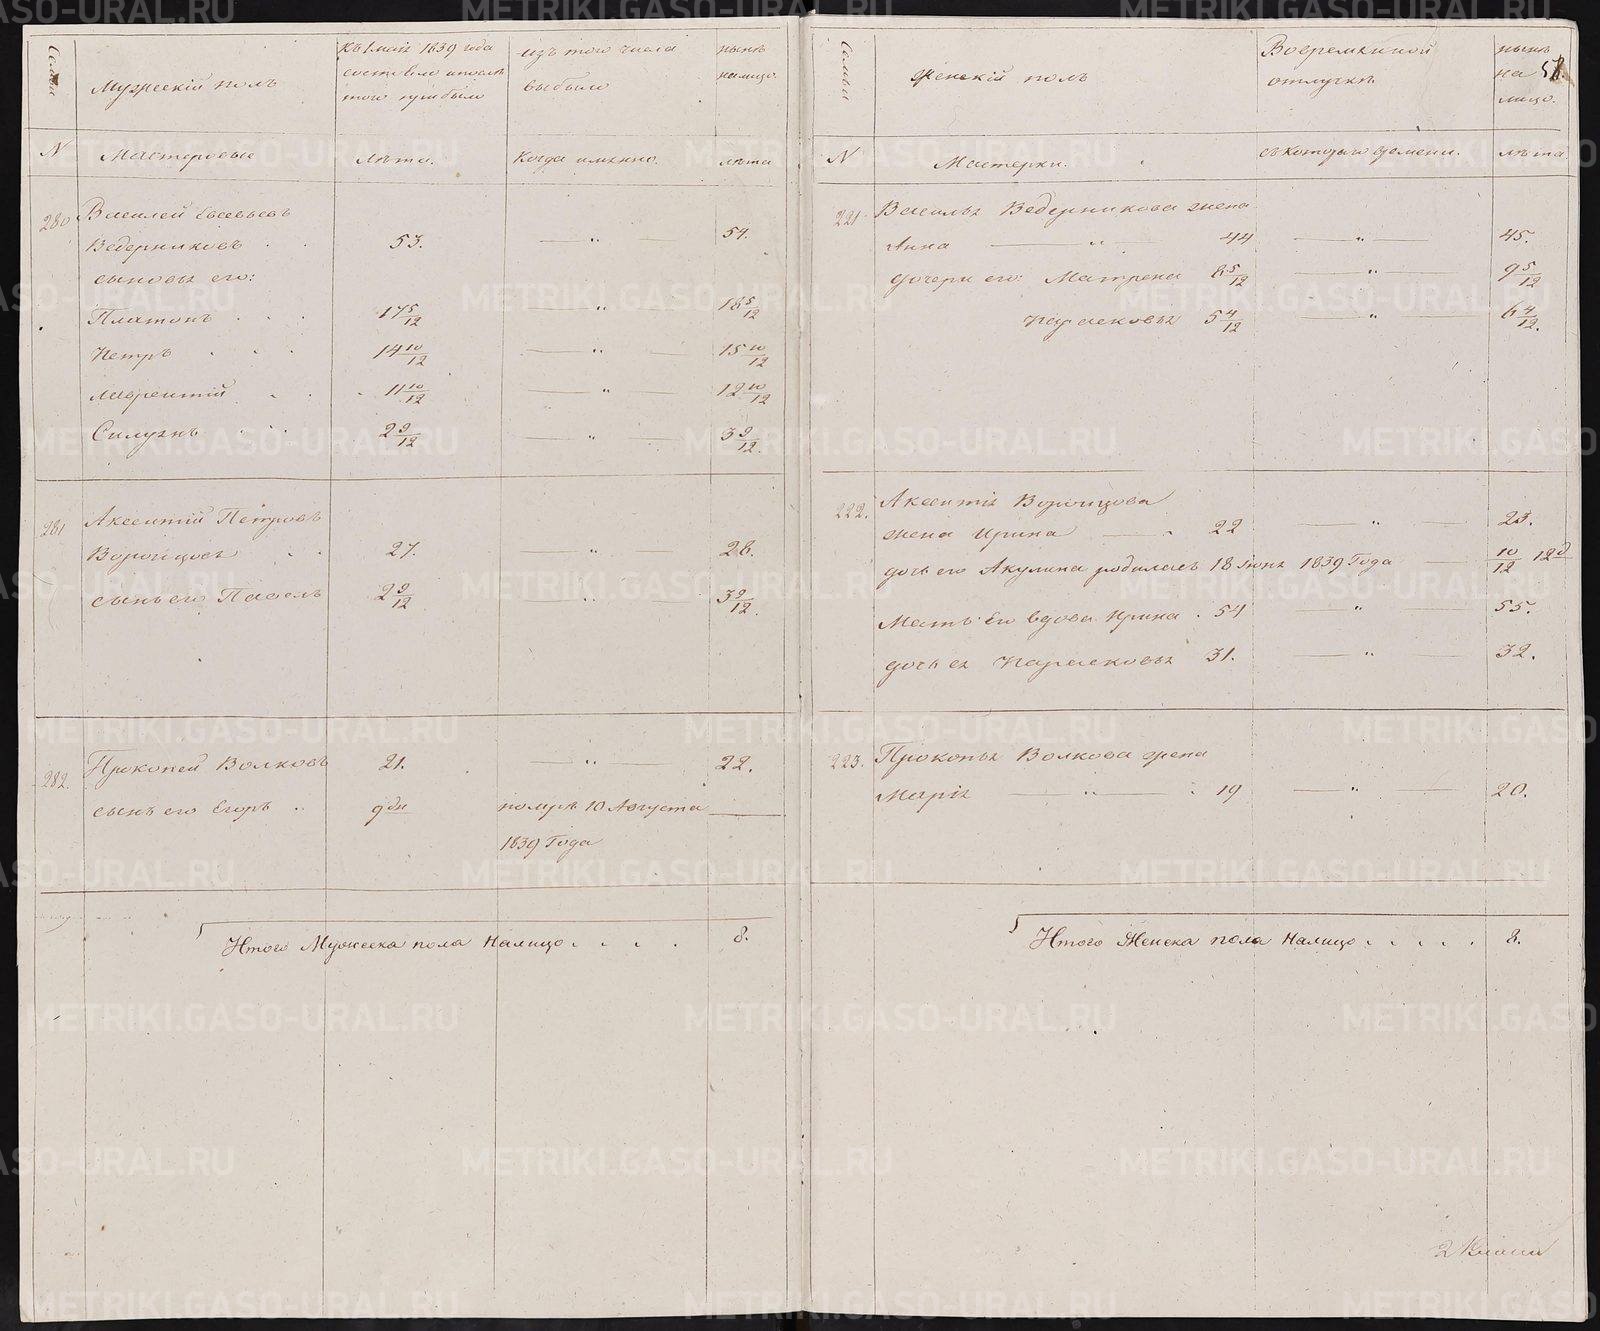 Семьи
Мужескій полъ
Къ 1 маія 1839 года
состояло и после
того прибыло
изъ того числа
выбыло
нынѣ
налицо.
N
Мастеровые
Лѣта.
Когда имянно.
лѣта
280
Василей Евсевьевъ
Ведерниковъ . . 53. — " — 54.
сыновья его:
Платонъ . . . 17 5/12 — " — 18 5/12
Петръ . . . 14 10/12 — " — 15 10/12
Лаврентій . . . 11 10/12 — " — 12 10/12
Силуянъ . . . 2 9/12 — " — 3 9/12.
281
Аксентій Петровъ
Воронцовъ . . 27. — " — 28.
сынъ его Павелъ 2 9/12 — " — 3 9/12.
282.
Прокопей Волковъ 21. — " — 22.
сынъ его Егоръ . . 9 дн помре 10 Августа —
1839 Года
Итого Мужеска пола Налицо . . . . 8.
Семьи
Женскій полъ
Вовремянной
отлучкѣ
нынѣ
на
лицо.
N
Мастерки.
съ котораго времени.
лѣта
221
Василья Ведерникова жена
Анна — " — 44 — " — 45.
дочери его: Матрена 8 5/12 — " — 9 5/12
Парасковья 5 4/12 — " — 6 4/12.
222.
Аксентія Воронцова
жена Ирина — . 22 — " — 23.
дочь его Акулина родилась 18 Июня 1839 Года — 10/12 12 д
Мать его вдова Ирина . 54 — " — 55.
дочь ея Парасковья 31. — " — 32.
223.
Прокопья Волкова жена
Марія — " — : 19 — " — 20.
Итого Женска пола Налицо . . . . . 8.
METRIKI.GASO-URAL.RU